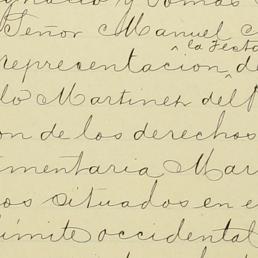 Ignacio y Tomas
Señor Manuel
la Testa
representacion de
lo Martinez del
on de los derechos
mentaria Mar
os situados en e
límite occidental